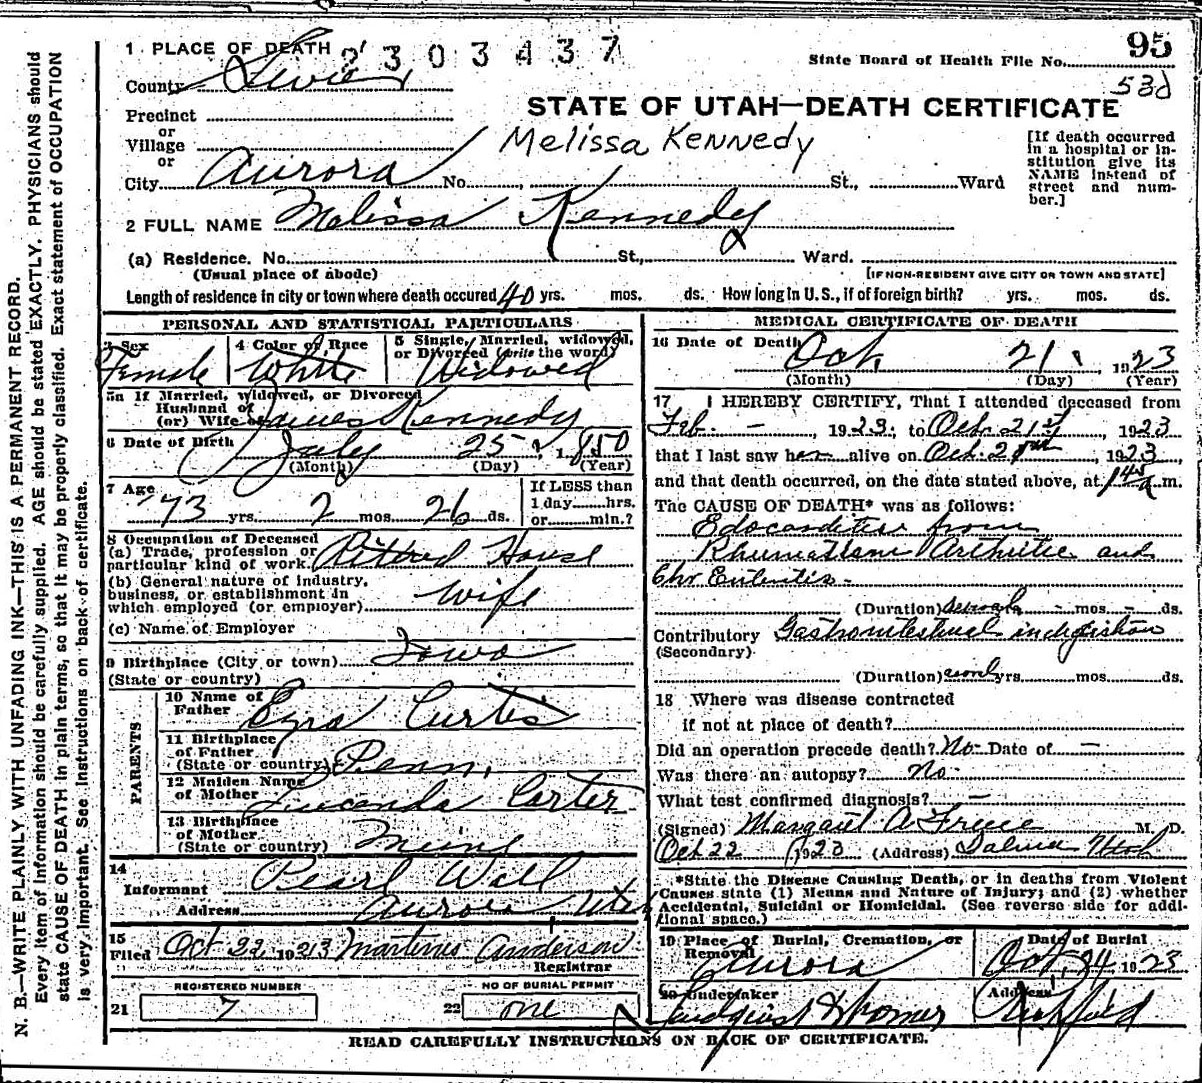 1 PLACE OF DEATH 2303437
State Board of Health File No. 95
County Sevier
53d
STATE OF UTAH—DEATH CERTIFICATE
Precinct
or
Village
Melissa Kennedy
or
City Aurora No. St., Ward
[If death occurred
in a hospital or in-
stitution give its
NAME instead of
street and num-
ber.]
2 FULL NAME Melissa Kennedy
(a) Residence. No. St., Ward.
(Usual place of abode) [IF NON-RESIDENT GIVE CITY OR TOWN AND STATE]
Length of residence in city or town where death occured 40 yrs. mos. ds. How long in U.S., if of foreign birth? yrs. mos. ds.
PERSONAL AND STATISTICAL PARTICULARS
3 Sex 4 Color or Race 5 Single, Married, widowed,
or Divorced (write the word)
Female White Widowed
5a If Married, widowed, or Divorced
Husband of
(or) Wife of James Kennedy
6 Date of Birth July 25, 1850
(Month) (Day) (Year)
7 Age If LESS than
73 yrs. 2 mos. 26 ds. 1 day hrs.
or min.?
8 Occupation of Deceased
(a) Trade, profession or
particular kind of work. House
(b) General nature of industry,
business, or establishment in
which employed (or employer) Wife
(c) Name of Employer
9 Birthplace (City or town) Iowa
(State or country)
PARENTS
10 Name of
Father Ezra Curtis
11 Birthplace
of Father
(State or country) Penn.
12 Maiden Name
of Mother Lucenda Carter
13 Birthplace
of Mother
(State or country)
14
Informant Pearl Wall
Address Aurora Utah
15
Filed Oct 22 1923 Martinus Anderson
Registrar
REGISTERED NUMBER NO OF BURIAL PERMIT
21 7 22 one
MEDICAL CERTIFICATE OF DEATH
16 Date of Death Oct 21, 1923
(Month) (Day) (Year)
17 I HEREBY CERTIFY, That I attended deceased from
Feb. - , 1923, to Oct. 21st, 1923
that I last saw her alive on Oct. , 1923,
and that death occurred, on the date stated above, at m.
The CAUSE OF DEATH* was as follows:
from
and
Chr
(Duration) - mos - ds.
Contributory Gastrointestinal indigestion
(Secondary)
(Duration) yrs. mos. ds.
18 Where was disease contracted
if not at place of death?
Did an operation precede death? No Date of —
Was there an autopsy? No
What test confirmed diagnosis? —
(Signed) Margaret A M. D.
Oct 22 1923 (Address) Salina Utah
*State the Disease Causing Death, or in deaths from Violent
Causes state (1) Means and Nature of Injury; and (2) whether
Accidental, Suicidal or Homicidal. (See reverse side for addi-
tional space.)
19 Place of Burial, Cremation, or Date of Burial
Removal
Aurora Oct. 24 1923
20 Undertaker Address
Richfield
READ CAREFULLY INSTRUCTIONS ON BACK OF CERTIFICATE.
N. B.—WRITE PLAINLY WITH UNFADING INK—THIS IS A PERMANENT RECORD.
Every item of information should be carefully supplied. AGE should be stated EXACTLY. PHYSICIANS should
state CAUSE OF DEATH in plain terms, so that it may be properly classified. Exact statement of OCCUPATION
is very important. See instructions on back of certificate.